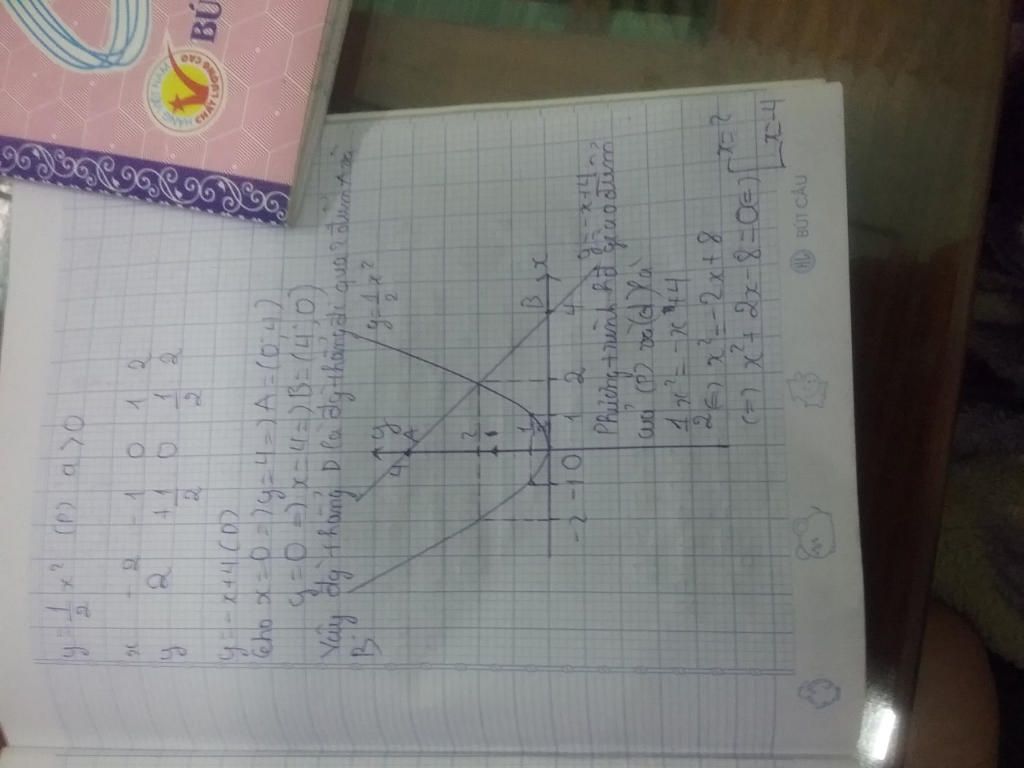 y = 1/2 x² (P) a > 0
x -2 -1 0 1 2
y 2 +1/2 0 1/2 2
y = -x + 4 (D)
Cho x = 0 => y = 4 => A = (0; 4)
y = 0 => x = 4 => B = (4; 0)
Vậy đg thẳng D là đg thẳng đi qua 2 điểm A và
B
y = 1/2 x²
y
4 A
2
1/2
-2 -1 0 1 2 4 B x
y = -x + 4
Phương trình hđ giao điểm
của (P) và (d) là
1/2 x² = -x + 4
<=> x² = -2x + 8
<=> x² + 2x - 8 = 0 => [ x = 2
[ x = -4
BÚT CẦU
BÚ
HÀNG VIỆT NAM
CHẤT LƯỢNG CAO